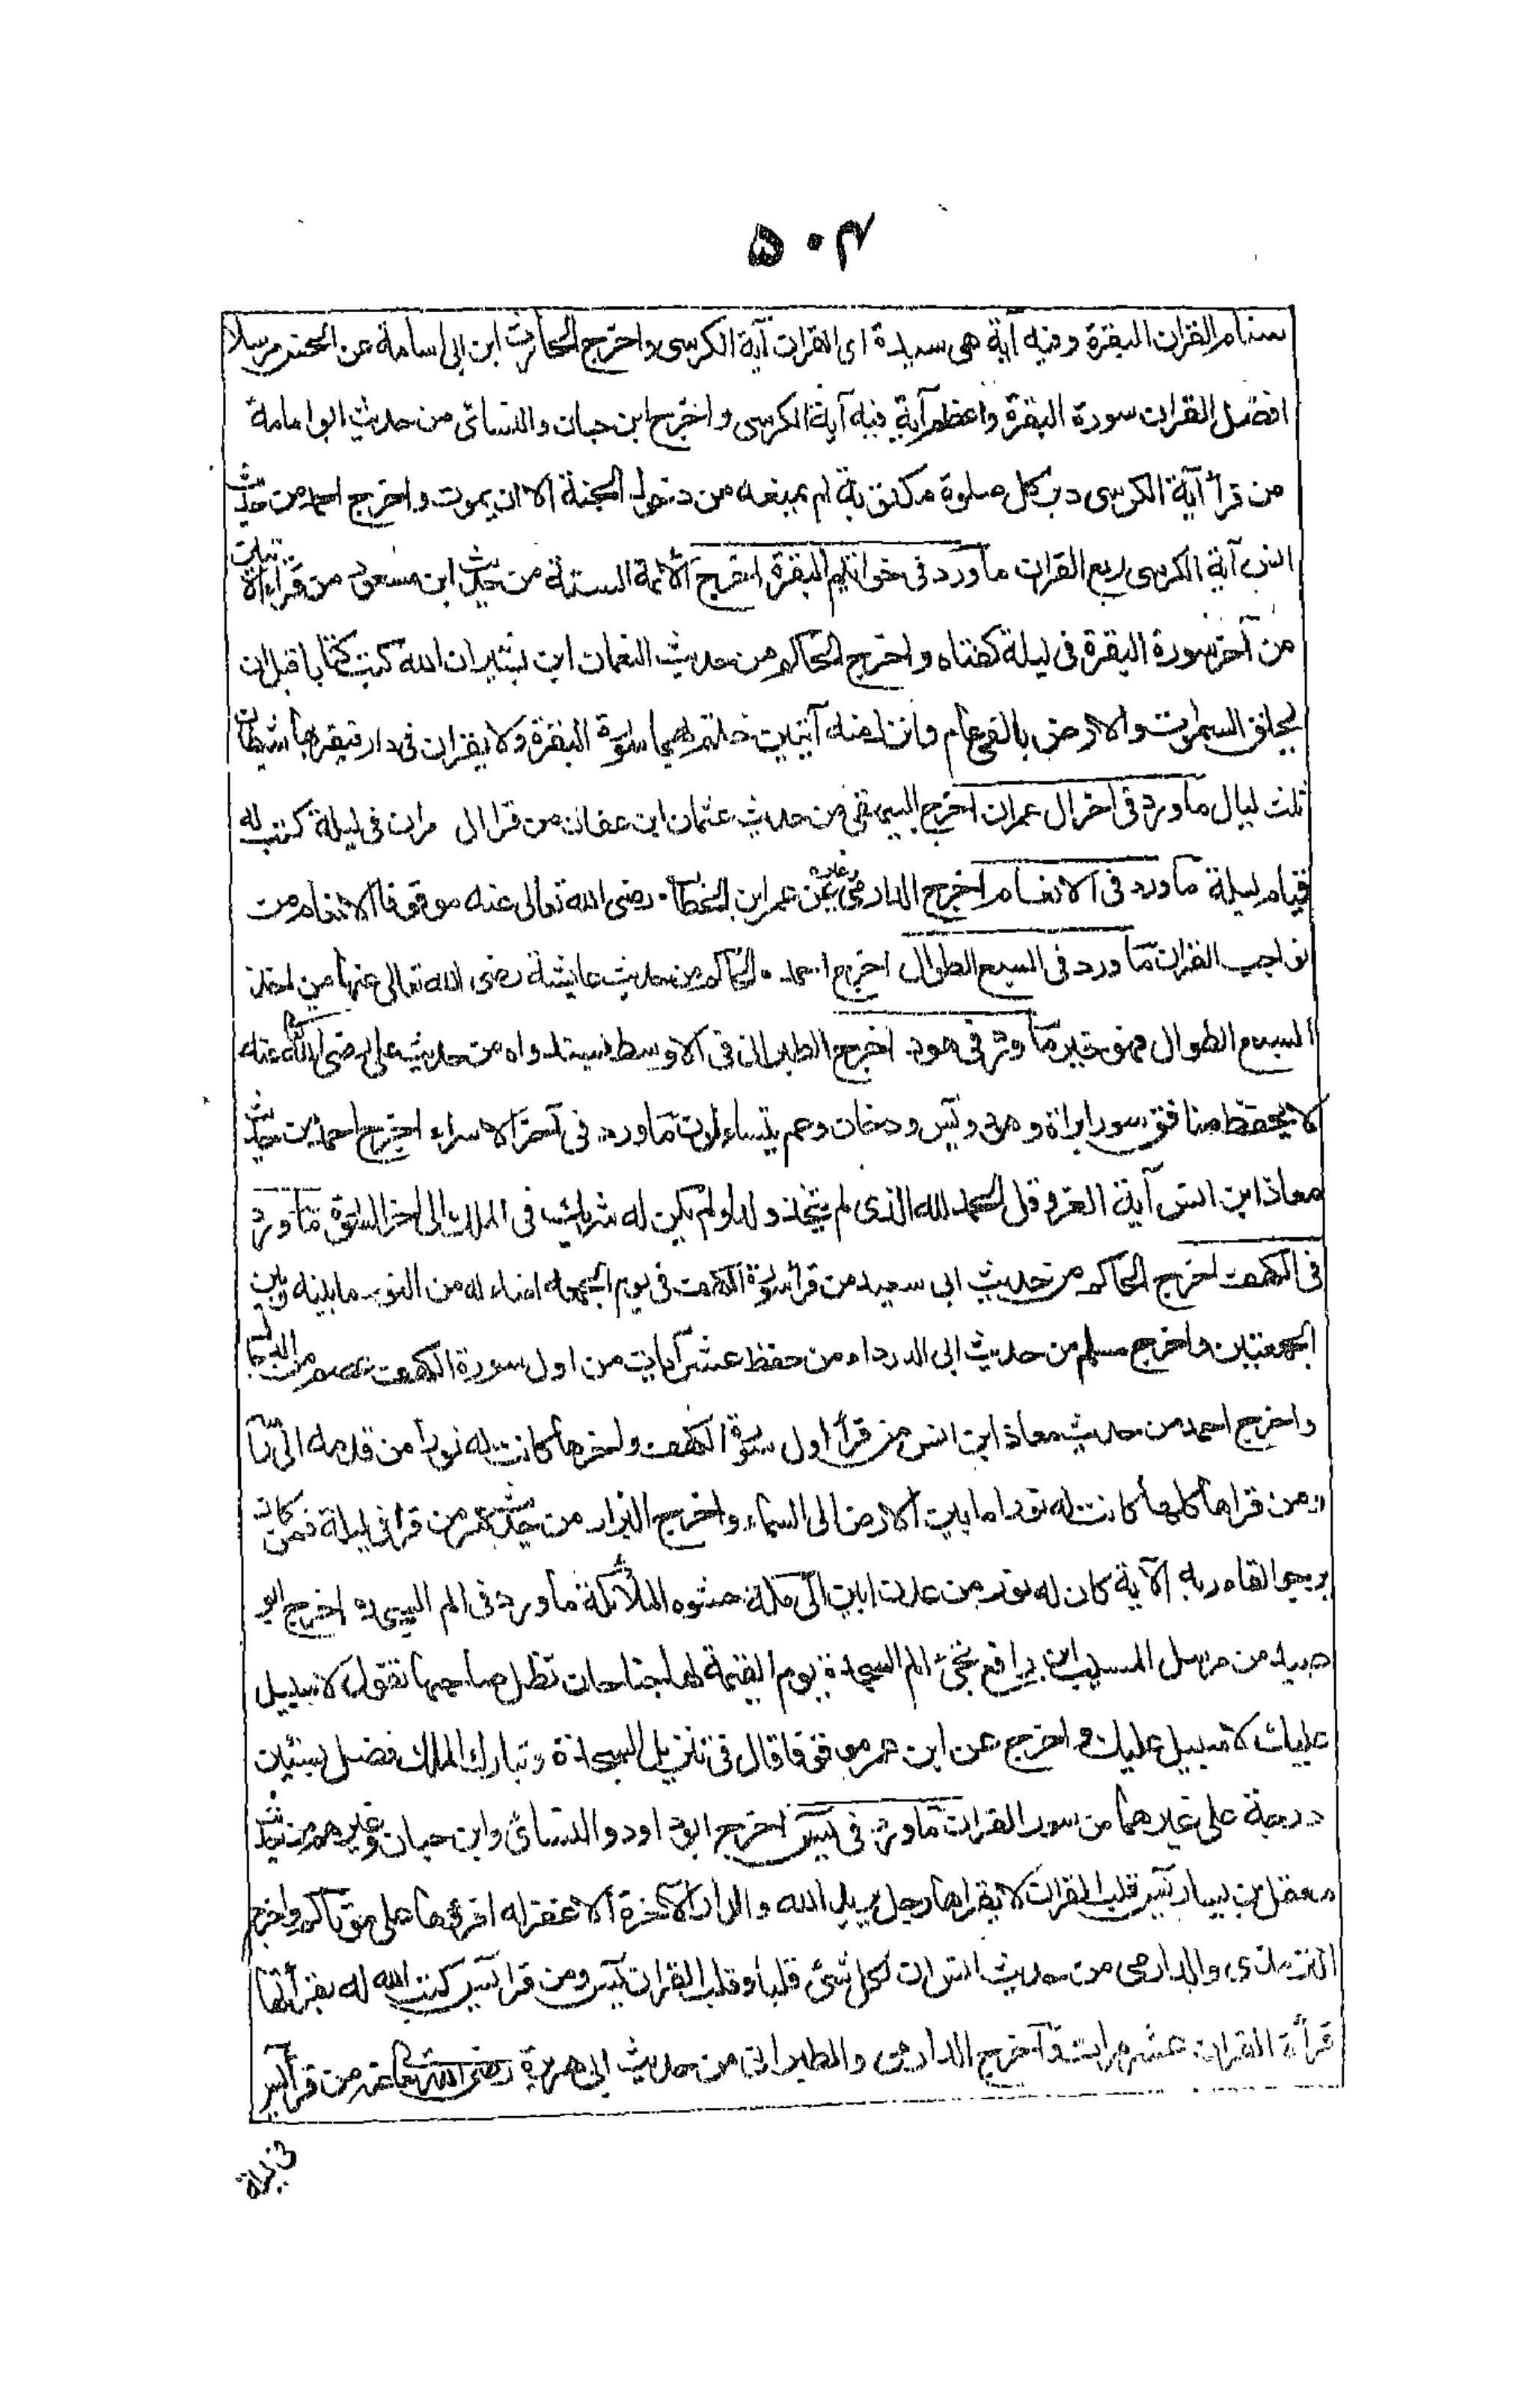 ۵۰۴
سنام القران البقرة وفيه آية هى سيدة اى القران آية الكرسى واخرج الحارث ابن ابى اسامة عن الحسن مرسلا
افضل القران سورة البقرة واعظم آية فيه آية الكرسى واخرج ابن حبان والنسائى من حديث ابو امامة
من قرأ آية الكرسى دبر كل صلوة مكتوبة لم يمنعه من دخول الجنة الا ان يموت واخرج احمد من حديث
انس آية الكرسى ربع القران ما ورد فى خواتيم البقرة اخرج الائمة الستة من حديث ابن مسعود من قرأ الآيتين
من آخر سورة البقرة فى ليلة كفتاه واخرج الحاكم من حديث النعمان ابن بشير ان الله كتب كتابا قبل ان
يخلق السموات والارض بالفى عام وانزل منه آيتين ختم بهما سورة البقرة ولا يقران فى دار فيقربها شيطان
ثلث ليال ما ورد فى اخر ال عمران اخرج البيهقى من حديث عثمان ابن عفان من قرا ال مران فى ليلة كتب له
قيام ليلة ما ورد فى الانعام اخرج الدارمى وغيره عن عمر ابن الخطاب رضى الله تعالى عنه موقوفا الانعام من
نواجب القران ما ورد فى السبع الطوال اخرج احمد والحاكم من حديث عايشة رضى الله تعالى عنها من اخذ
السبع الطوال فهو خير ما ورد فى هود اخرج الطبرانى فى الاوسط بسند واه من حديث على رضى الله عنه
لا يحفظ منافق سور براة وهود ويس ودخان وعم يتساءلون ما ورد فى آخر الاسراء اخرج احمد من حديث
معاذ ابن انس آية العز وقل الحمد لله الذى لم يتخذ ولدا ولم يكن له شريك فى الملك الى اخر السورة ما ورد
فى الكهف اخرج الحاكم من حديث ابى سعيد من قرأ سورة الكهف فى يوم الجمعة اضاء له من النور ما بينه وبين
الجمعتين واخرج مسلم من حديث ابى الدرداء من حفظ عشر آيات من اول سورة الكهف عصم من الدجال
واخرج احمد من حديث معاذ ابن انس من قرأ اول سورة الكهف واخرها كانت له نورا من قدمه الى رأسه
ومن قراها كلها كانت له نورا ما بين الارض الى السماء واخرج البزار من حديث عمر من قرأ فى ليلة فمن كان
يرجوا لقاء ربه الآية كان له نور من عدن ابين الى مكة حشوه الملائكة ما ورد فى الم السجدة اخرج ابو
عبيد من مرسل المسيب ابن رافع تجئ الم السجدة يوم القيمة لها جناحان تظل صاحبها تقول لا سبيل
عليك لا سبيل عليك واخرج عن ابن عمر موقوفا قال فى تنزيل السجدة وتبارك الملك فضل ستين
درجة على غيرهما من سور القران ما ورد فى يس اخرج ابو داود والنسائى وابن حبان وغيرهم من حديث
معقل بن يسار يس قلب القران لا يقراها رجل يريد الله والدار الآخرة الا غفر له اقرؤها على موتاكم واخرج
الترمذى والدارمى من حديث انس ان لكل شئ قلبا وقلب القران يس ومن قرا يس كتب الله له بقرأتها
قرأة القران عشر مرات واخرج الدارمى والطبرانى من حديث ابى هريرة رضى الله تعالى عنه من قرأ يس
فى ليلة